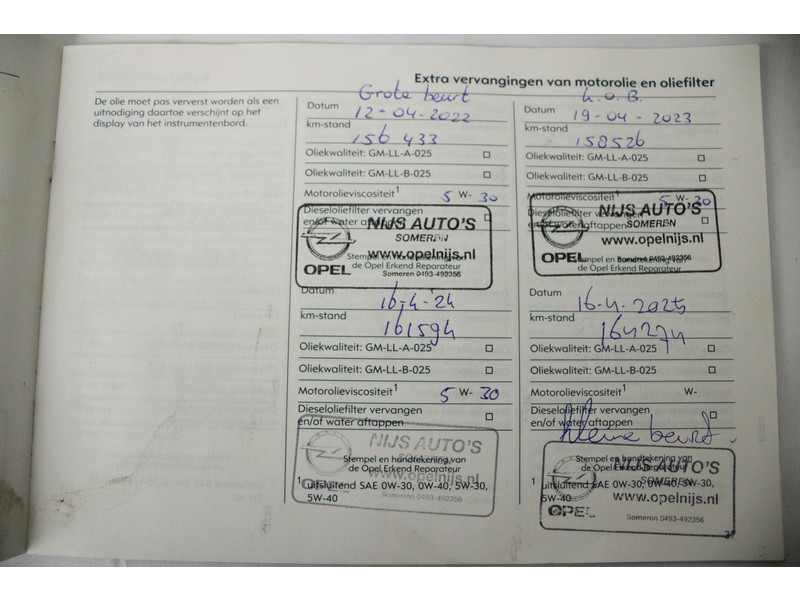 Extra vervangingen van motorolie en oliefilter
De olie moet pas ververst worden als een
uitnodiging daartoe verschijnt op het
display van het instrumentenbord.
Grote beurt
Datum 12-04-2022
km-stand
156 433
Oliekwaliteit: GM-LL-A-025
Oliekwaliteit: GM-LL-B-025
Motorolieviscositeit1 5 W- 30
Dieseloliefilter vervangen
en/of water aftappen
NIJS AUTO'S
SOMEREN
www.opelnijs.nl
Stempel en handtekening van
de Opel Erkend Reparateur
OPEL Someren 0493-492356
Datum 16-4-'24
km-stand
161594
Oliekwaliteit: GM-LL-A-025
Oliekwaliteit: GM-LL-B-025
Motorolieviscositeit1 5 W- 30
Dieseloliefilter vervangen
en/of water aftappen
NIJS AUTO'S
SOMEREN
Stempel en handtekening van
de Opel Erkend Reparateur
www.opelnijs.nl
OPEL
Someren 0493-492356
1 uitsluitend SAE 0W-30, 0W-40, 5W-30,
5W-40
K.O.B.
Datum
19-04-2023
km-stand
158526
Oliekwaliteit: GM-LL-A-025
Oliekwaliteit: GM-LL-B-025
Motorolieviscositeit1 5 W- 30
Dieseloliefilter vervangen
en/of water aftappen
NIJS AUTO'S
SOMEREN
www.opelnijs.nl
OPEL
Someren 0493-492356
Stempel en handtekening van
de Opel Erkend Reparateur
Datum
16-4-2025
km-stand
164274
Oliekwaliteit: GM-LL-A-025
Oliekwaliteit: GM-LL-B-025
Motorolieviscositeit1 W-
Dieseloliefilter vervangen
en/of water aftappen
kleine beurt.
Stempel en handtekening van
de Opel Erkend Reparateur
NIJS AUTO'S
SOMEREN
www.opelnijs.nl
OPEL
Someren 0493-492356
1 uitsluitend SAE 0W-30, 0W-40, 5W-30,
5W-40
37